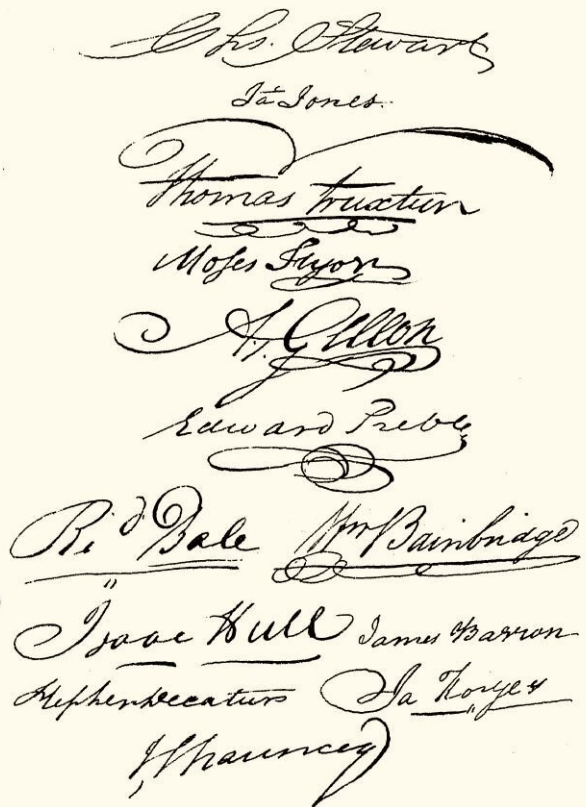 Chs. Stewart
Jas Jones.
Thomas Truxtun
Moses Tryon
A. Gillon
Edward Preble
Rid Dale Wm Bainbridge
Isaac Hull James Barron
Stephen Decatur
I Chauncey